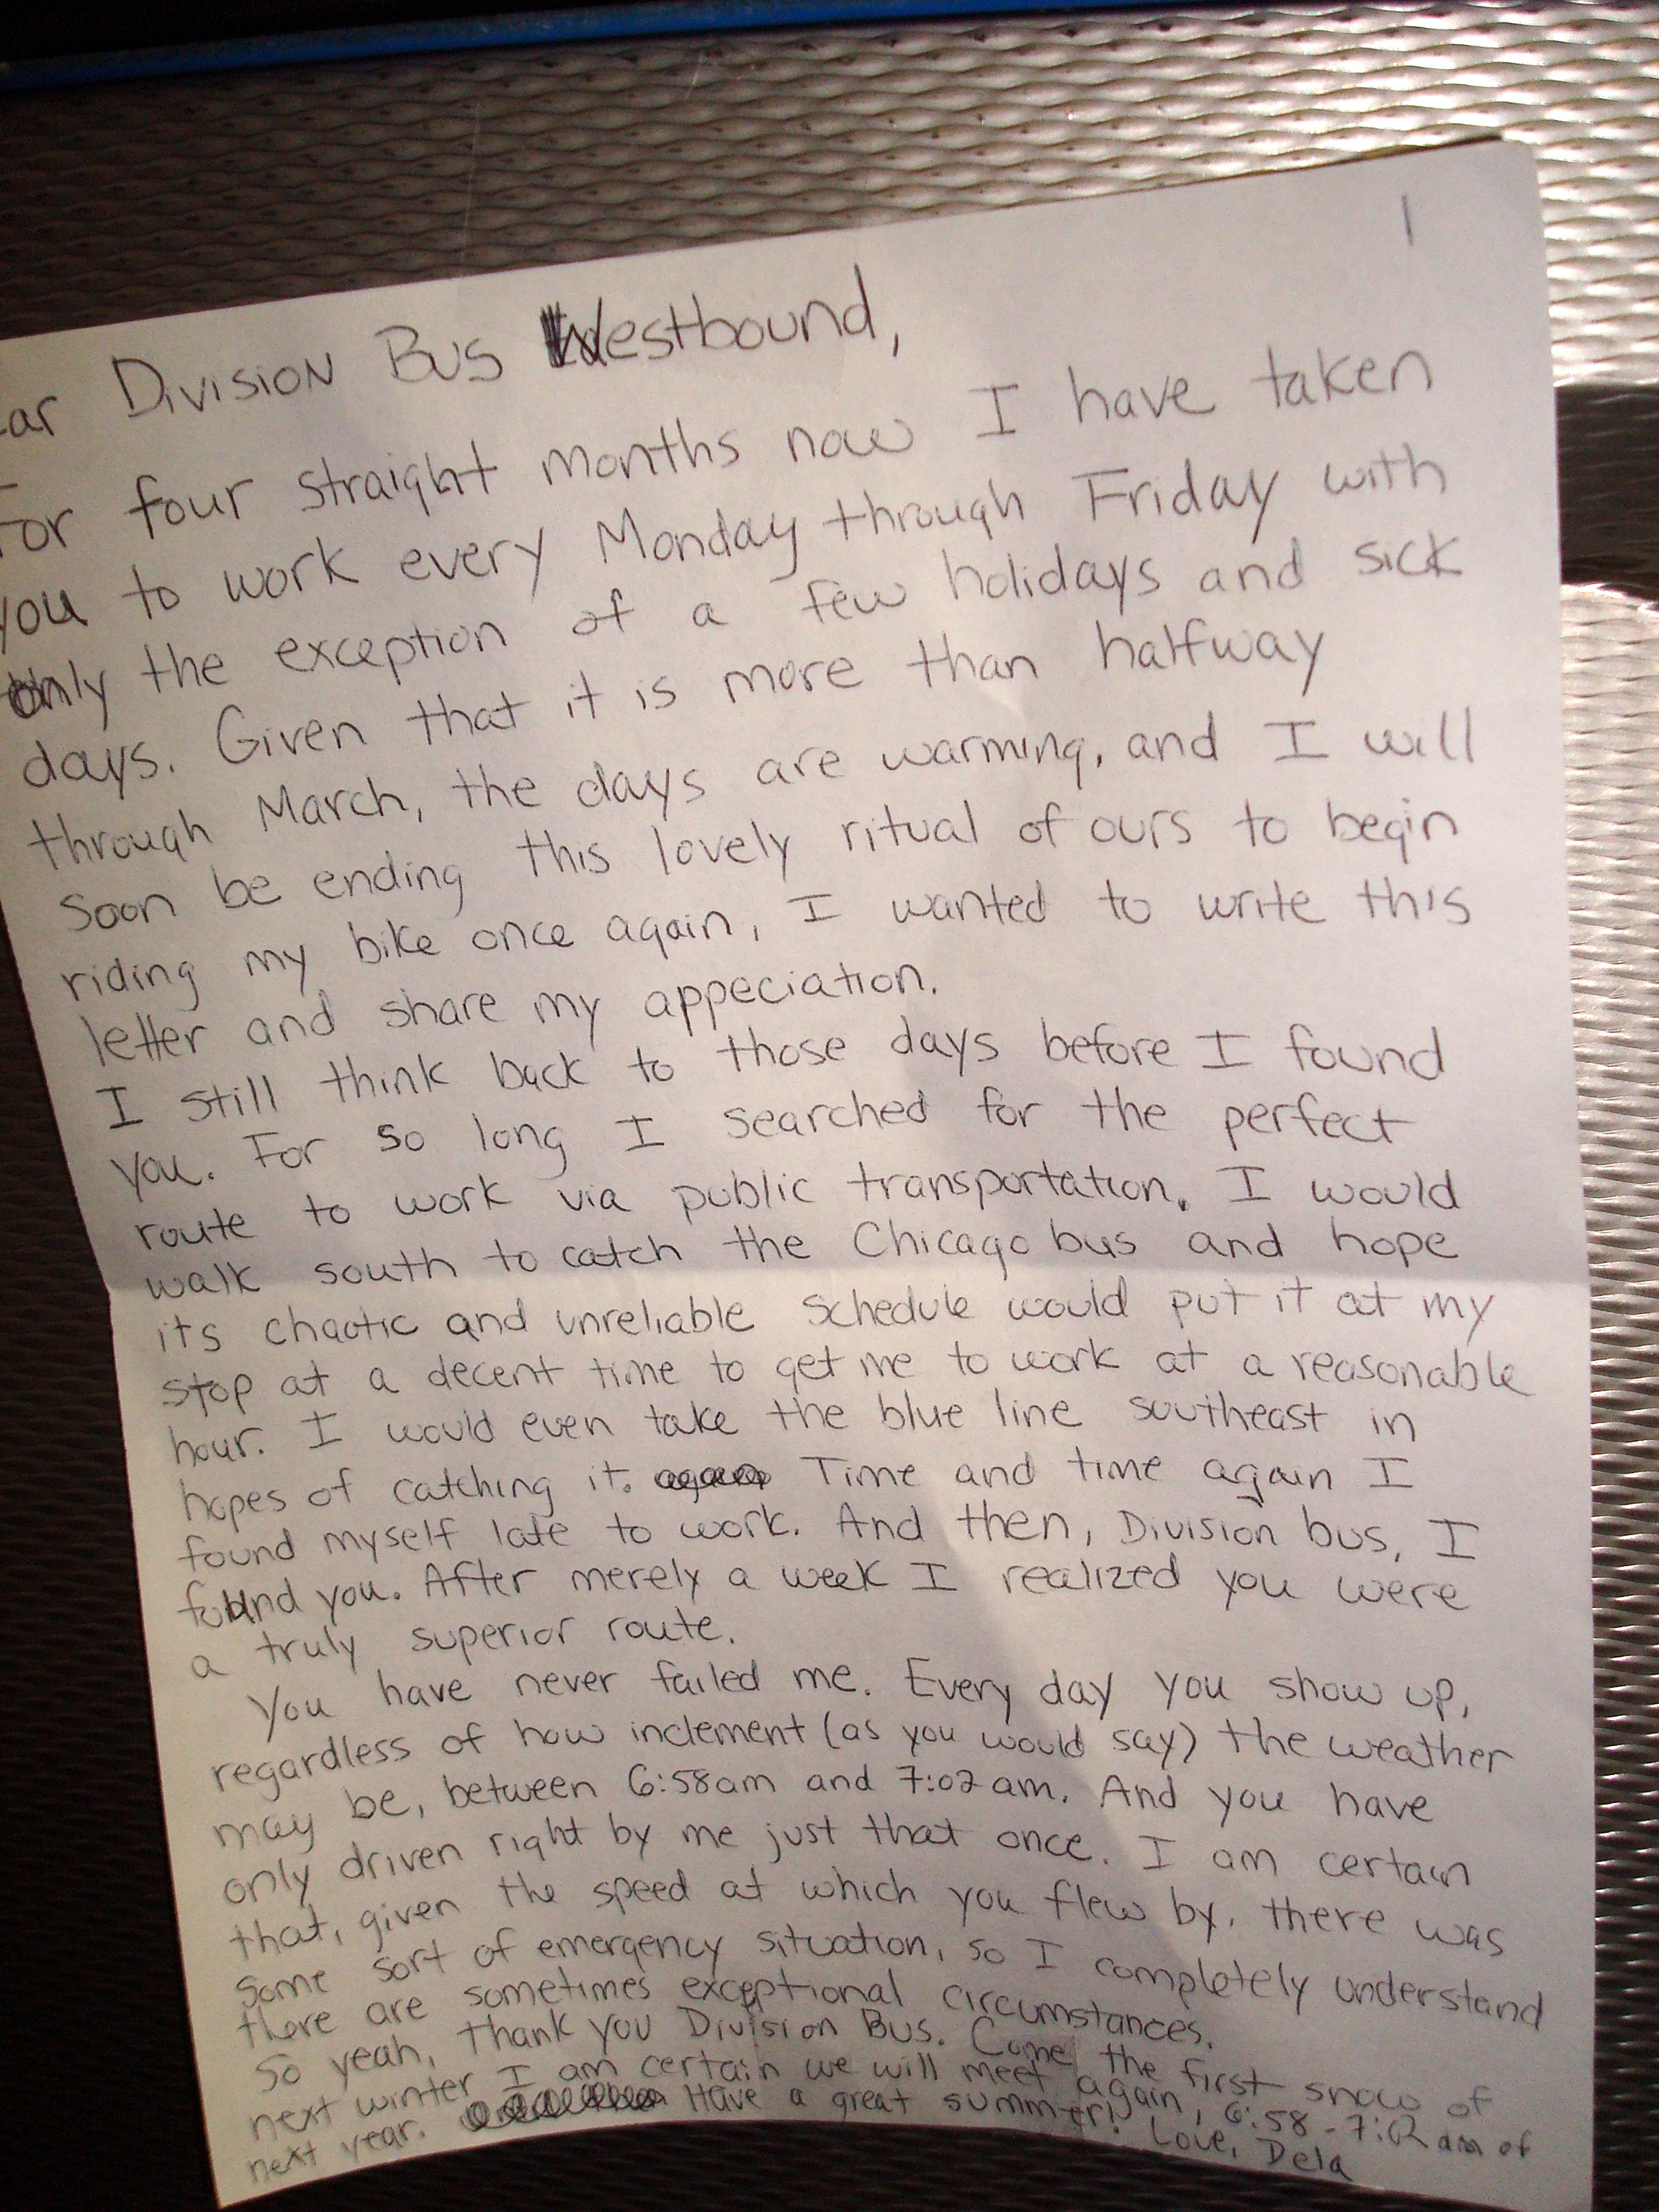 1
ear Division Bus Westbound,
For four straight months now I have taken
you to work every Monday through Friday with
only the exception of a few holidays and sick
days. Given that it is more than halfway
through March, the days are warming, and I will
soon be ending this lovely ritual of ours to begin
riding my bike once again, I wanted to write this
letter and share my appeciation.
I still think back to those days before I found
you. For so long I searched for the perfect
route to work via public transportation. I would
walk south to catch the Chicago bus and hope
its chaotic and unreliable schedule would put it at my
stop at a decent time to get me to work at a reasonable
hour. I would even take the blue line southeast in
hopes of catching it. Time and time again I
found myself late to work. And then, Division bus, I
found you. After merely a week I realized you were
a truly superior route.
You have never failed me. Every day you show up,
regardless of how inclement (as you would say) the weather
may be, between 6:58am and 7:02am. And you have
only driven right by me just that once. I am certain
that, given the speed at which you flew by, there was
some sort of emergency situation, so I completely understand
there are sometimes exceptional circumstances.
So yeah, thank you Division Bus. Come the first snow of
next winter I am certain we will meet again, 6:58-7:02 am of
next year. Have a great summer! Love, Dela